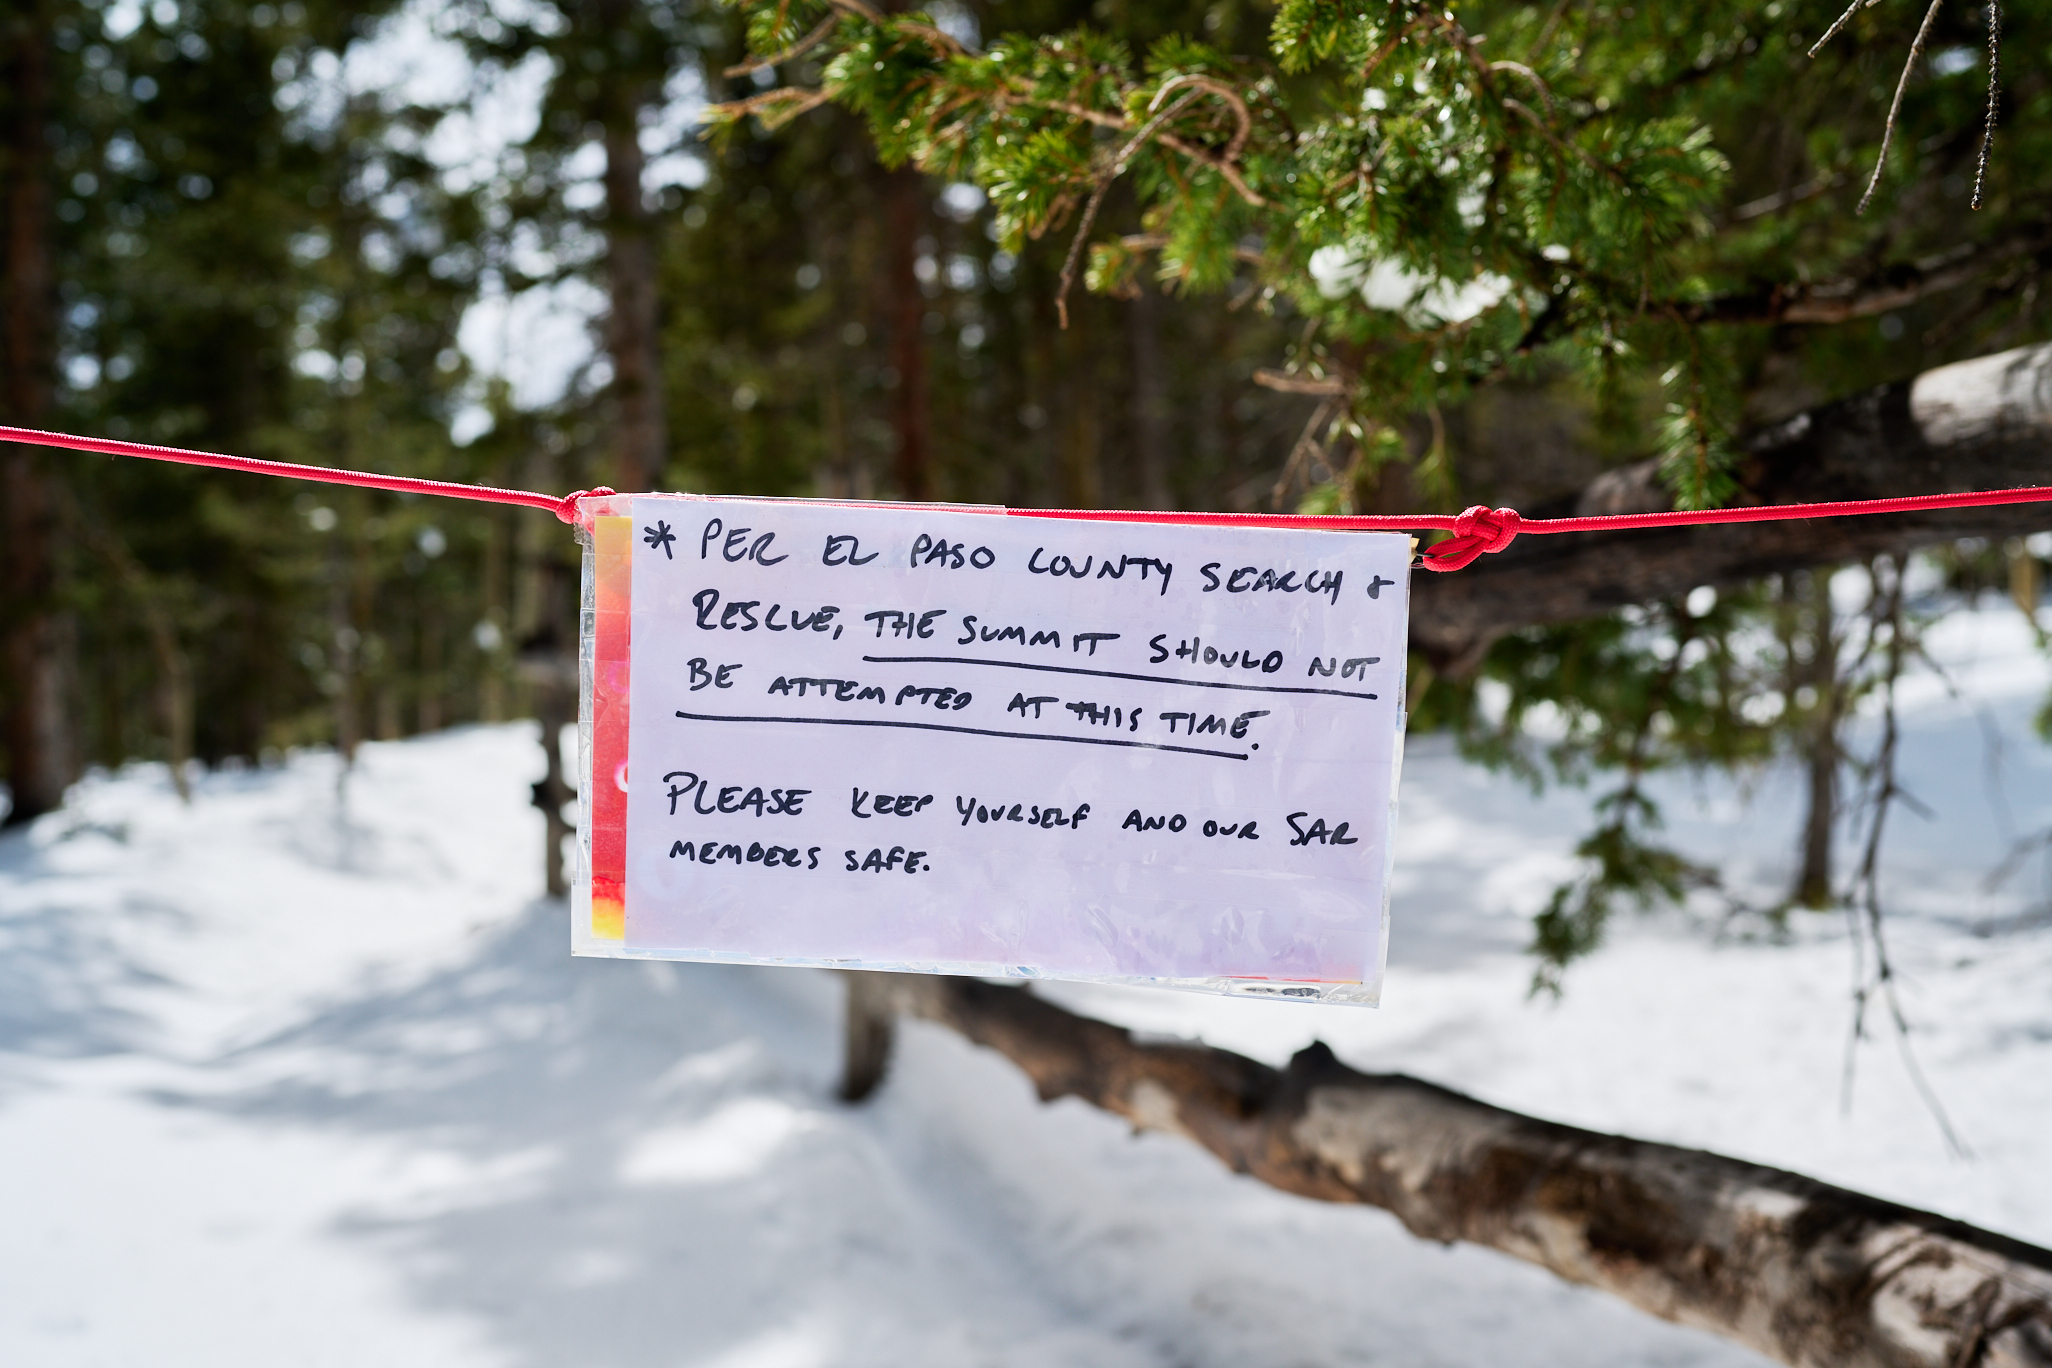 * PER EL PASO COUNTY SEARCH &
RESCUE, THE SUMMIT SHOULD NOT
BE ATTEMPTED AT THIS TIME.
PLEASE KEEP YOURSELF AND OUR SAR
MEMBERS SAFE.